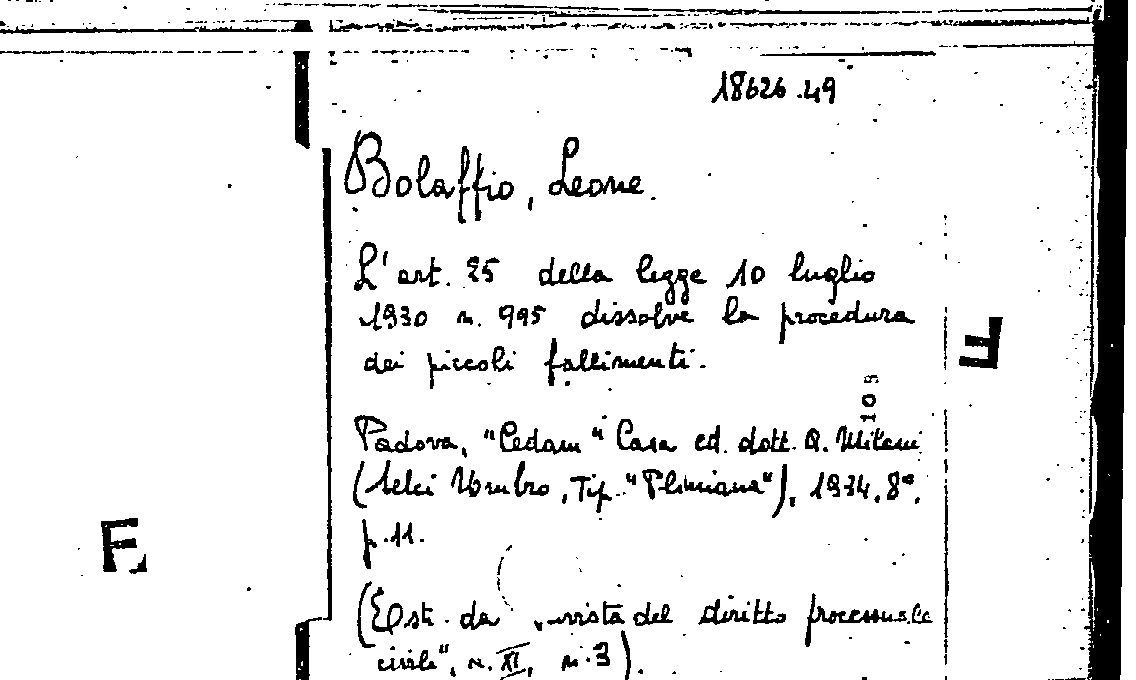 18626.49
Bolaffio, Leone.
L'art. 25 della legge 10 luglio
1930 n. 995 dissolve la procedura
dei piccoli fallimenti.
109
Padova, "Cedam" Casa ed. dott. A. Milani
(Selci Umbro, Tip. "Pliniana"), 1934, 8°,
p. 11.
(Estr. da rivista del diritto processuale
civile", a. XI, n. 3).
F
F